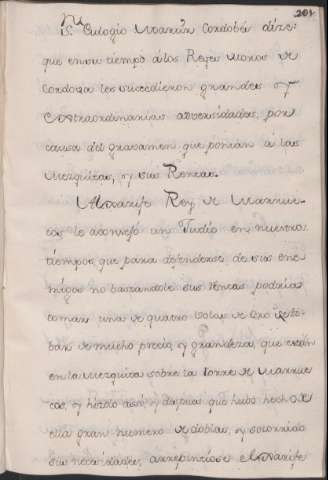 201
S. Eulogio Martir Cordobés dize:
que en su tiempo à los Reyes Moros de
Cordova les sucedieron grandes y
extraordinarias adversidades, por
causa del gravamen que ponian à las
Mezquitas, y sus Rentas.
Rey de Marrue-
cos le aconsejó un Judio en nuestros
tiempos, que para defenderse de sus ene-
migos no bastandole sus rentas podria
tomar una de quatro bolas de Oro
de mucho precio, y grandeza, que están
en la Mezquita sobre la torre de Marrue-
cos, y hizolo assi, y despues que hubo hecho de
ella gran numero de doblas, y socorrido
sus necesidades, arrepintiose el